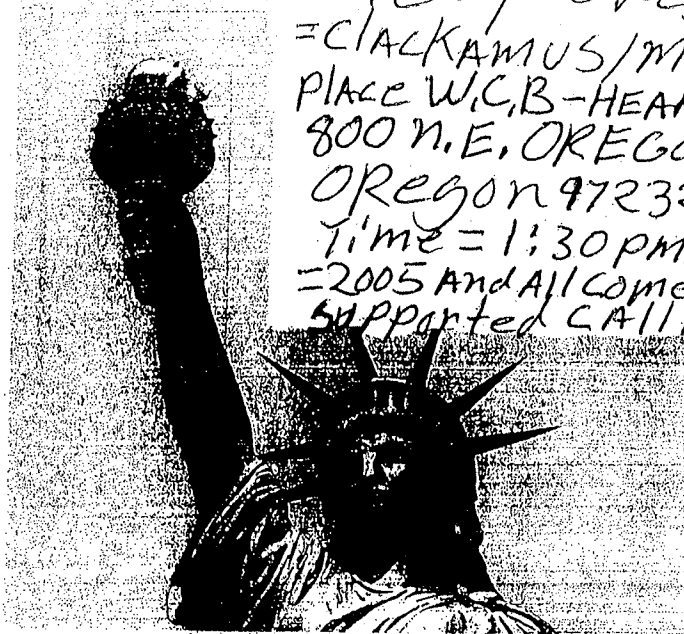 =CLACKAMUS/M
PLACE W.C.B-HEAR
800 N.E. OREGO
ORegon 97232
Time = 1:30 PM
=2005 And All Come
Supported CAll